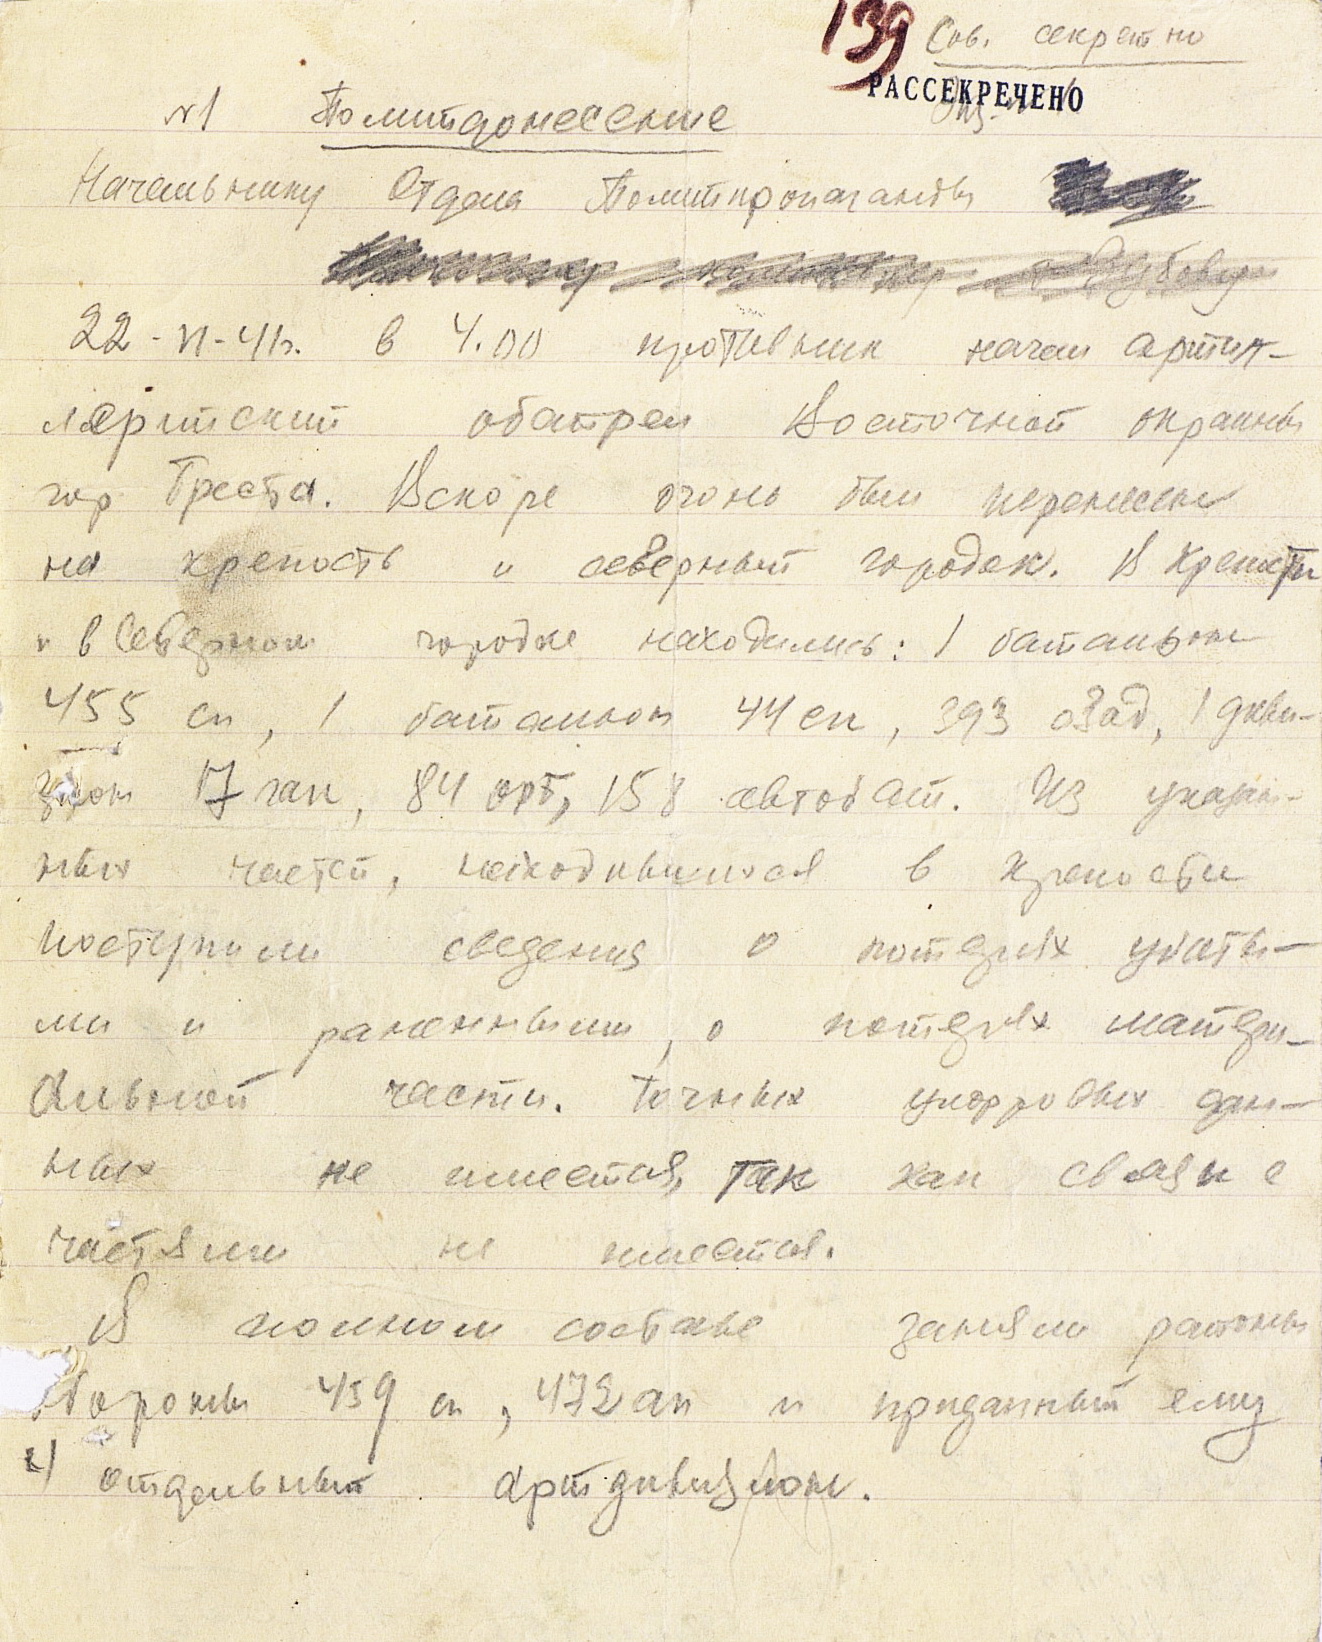 139 Сов. секретно
РАССЕКРЕЧЕНО
Экз. №
№1 Политдонесение
Начальнику Отдела Политпропаганды
22-VI-41г. в 4.00 противник начал артил-
лерийский обстрел Восточной окраины
гор Бреста. Вскоре огонь был перенесен
на крепость и северный городок. В Крепости
и в Северном городке находились: 1 батальон
455 сп, 1 батальон 44 сп, 393 озад, 1 диви-
зион 17 гап, 84 орб, 158 автобат. Из указан-
ных частей, находившихся в крепости
поступили сведения о потерях убиты-
ми и ранеными, о потерях матери-
альной части. Точных цифровых дан-
ных не имеется, так как связи с
частями не имеется.
В полном составе заняли районы
обороны 459 сп, 472 ап и приданный ему
4 отдельный артдивизион.